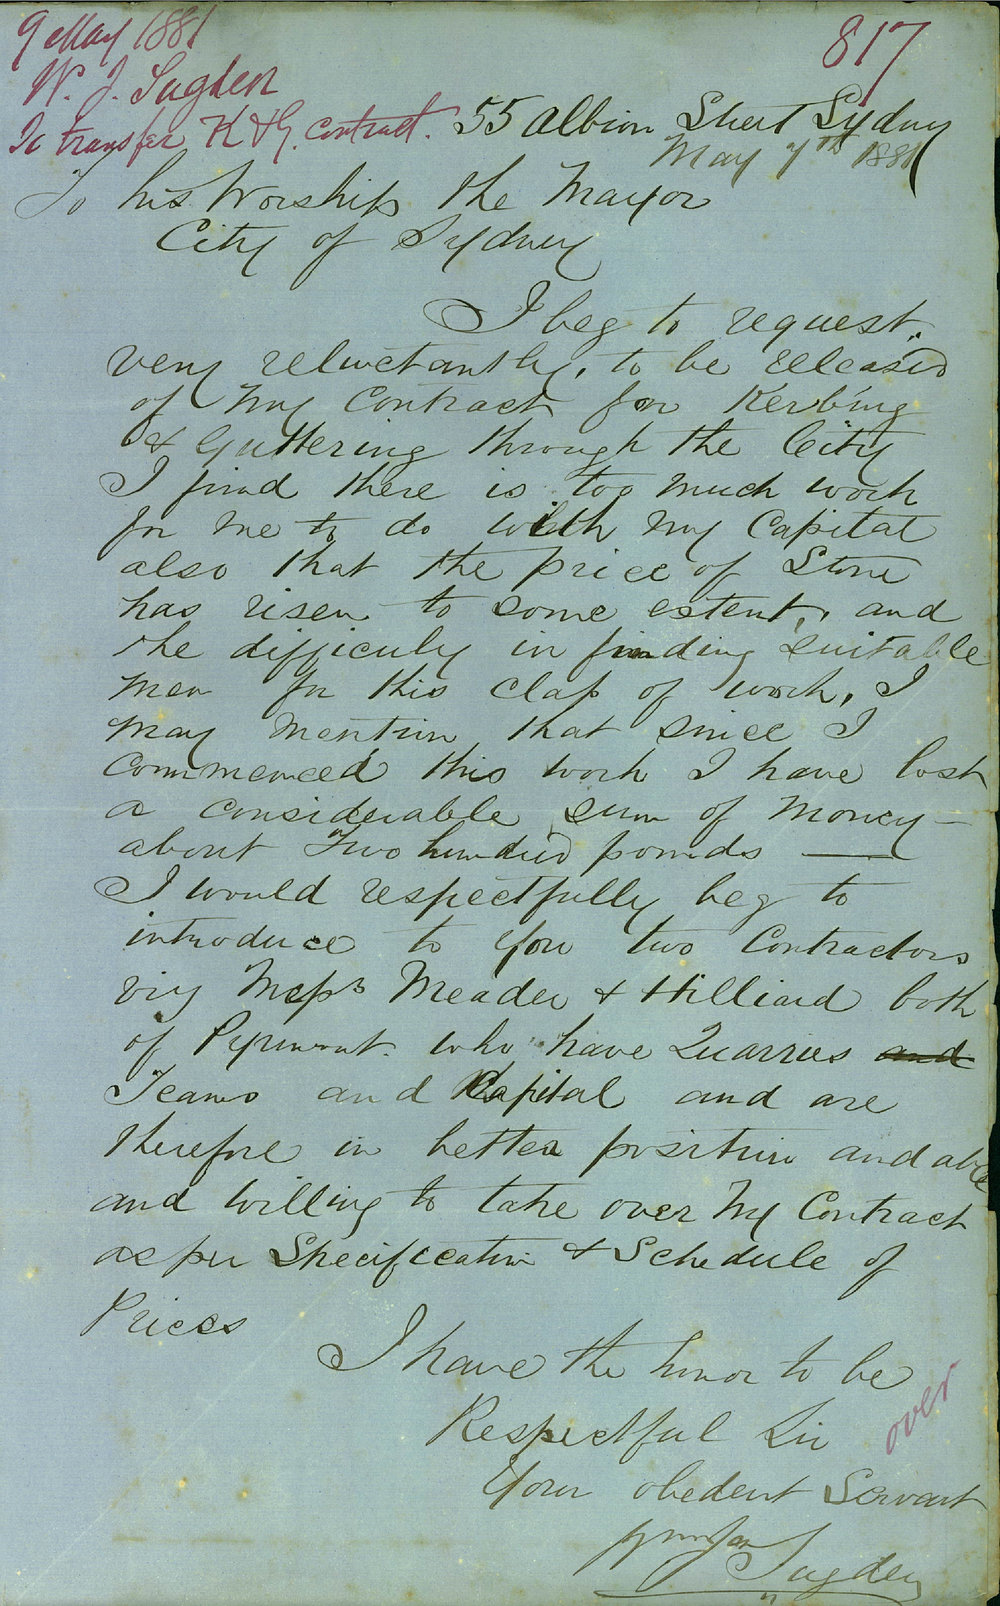 9 May 1881
W. J. Sugden
To transfer K & G. contract.
817
55 Albion Street Sydney
May 7th 1881
To his Worship the Mayor
City of Sydney
I beg to request
very reluctantly, to be released
of my Contract for Kerbing
& Guttering through the City
I find there is too much work
for me to do with my Capital
also that the price of Stone
has risen to some extent, and
the difficuly in finding suitable
men for this class of work, I
may mention that since I
commenced this work I have lost
a considerable sum of money —
about Two hundred pounds —
I would respectfully beg to
introduce to you two Contractors
viz Messrs Meader & Hilliard both
of Pyrmont. who have Quarries and
Teams and Capital and are
therefore in better position and able
and willing to take over my Contract
as per Specification & Schedule of
Prices
I have the honor to be
Respectful Sir
over
Your obedent Servant
Sugden